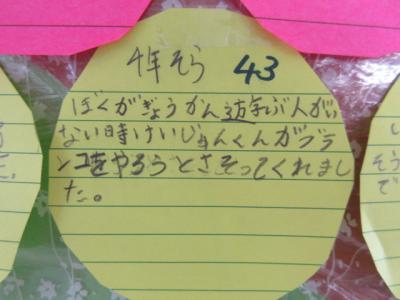 4年そら 43
ぼくがぎょうかん遊ぶ人がい
ない時けいじゅんくんがブラ
ンコをやろうとさそってくれまし
た。
そう
で